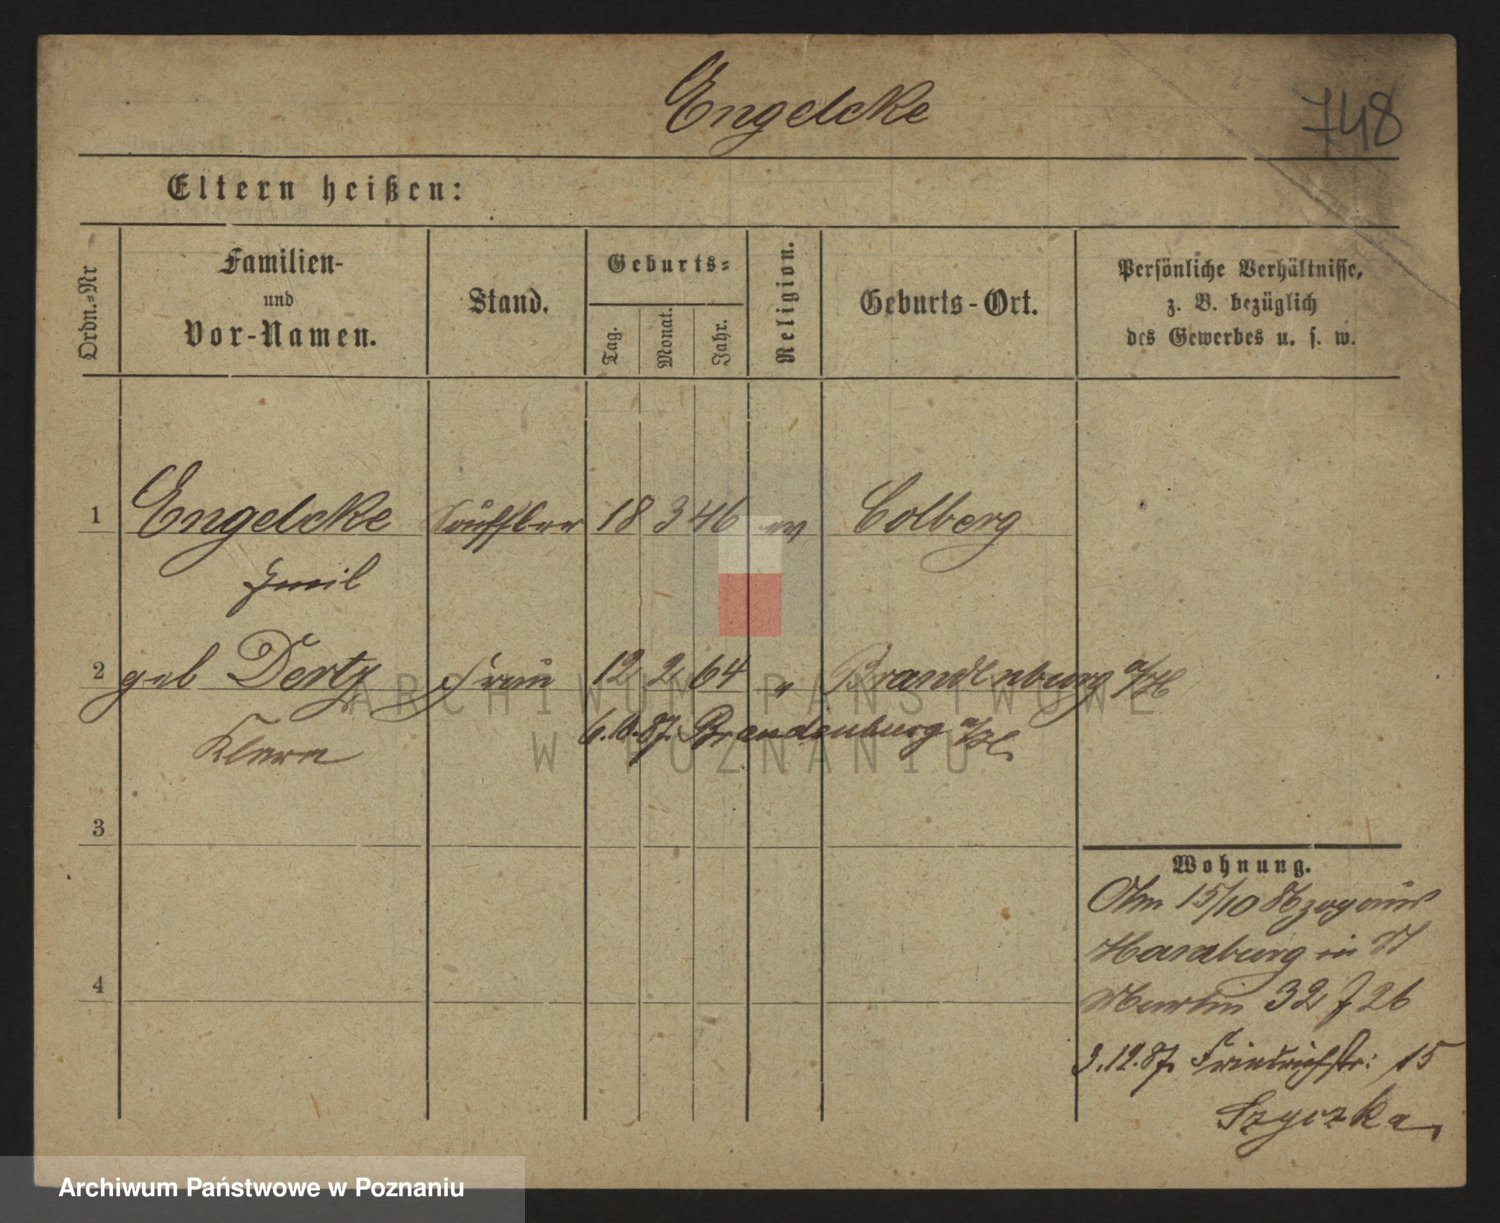 Engelcke
748
Eltern heißen:
Ordn.=Nr
Familien-
und
Vor-Namen.
Stand.
Geburts=
Tag.
Monat.
Jahr.
Religion.
Geburts-Ort.
Persönliche Verhältnisse,
z. B. bezüglich
des Gewerbes u. s. w.
1 Engelcke 18 3 46 ev Colberg
Emil
2 geb Dertz Frau 12 2 64 " Brandenburg a/H
Klara
6.10.87. Brandenburg a/H.
3
4
Wohnung.
Am 15/10 87 zog aus
Hamburg in St
Martin 32 J 26
3.12.87. Friedrichstr: 15
Szyczka
ARCHIWUM PAŃSTWOWE
W POZNANIU
Archiwum Państwowe w Poznaniu